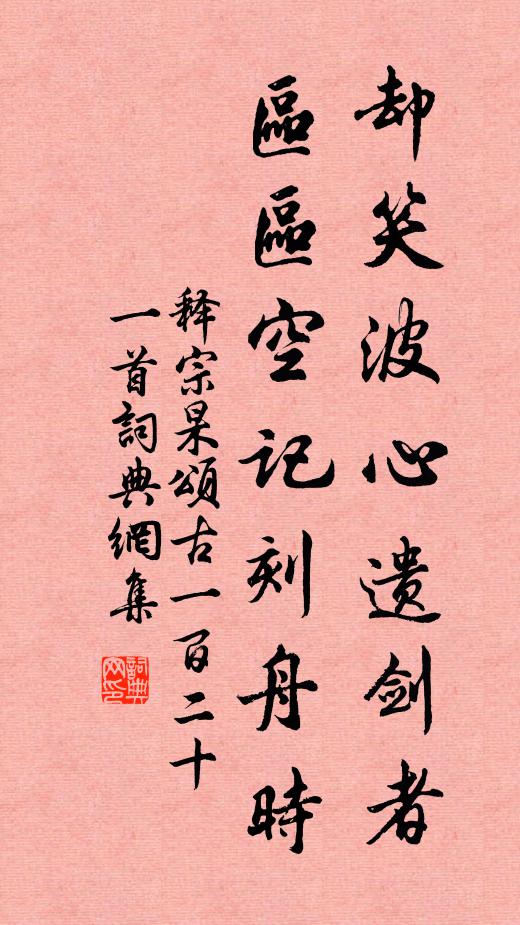 却笑波心遗剑者
區區空记刻舟時
释宗杲頌古一百二十
一首詞典網集
詞典网印